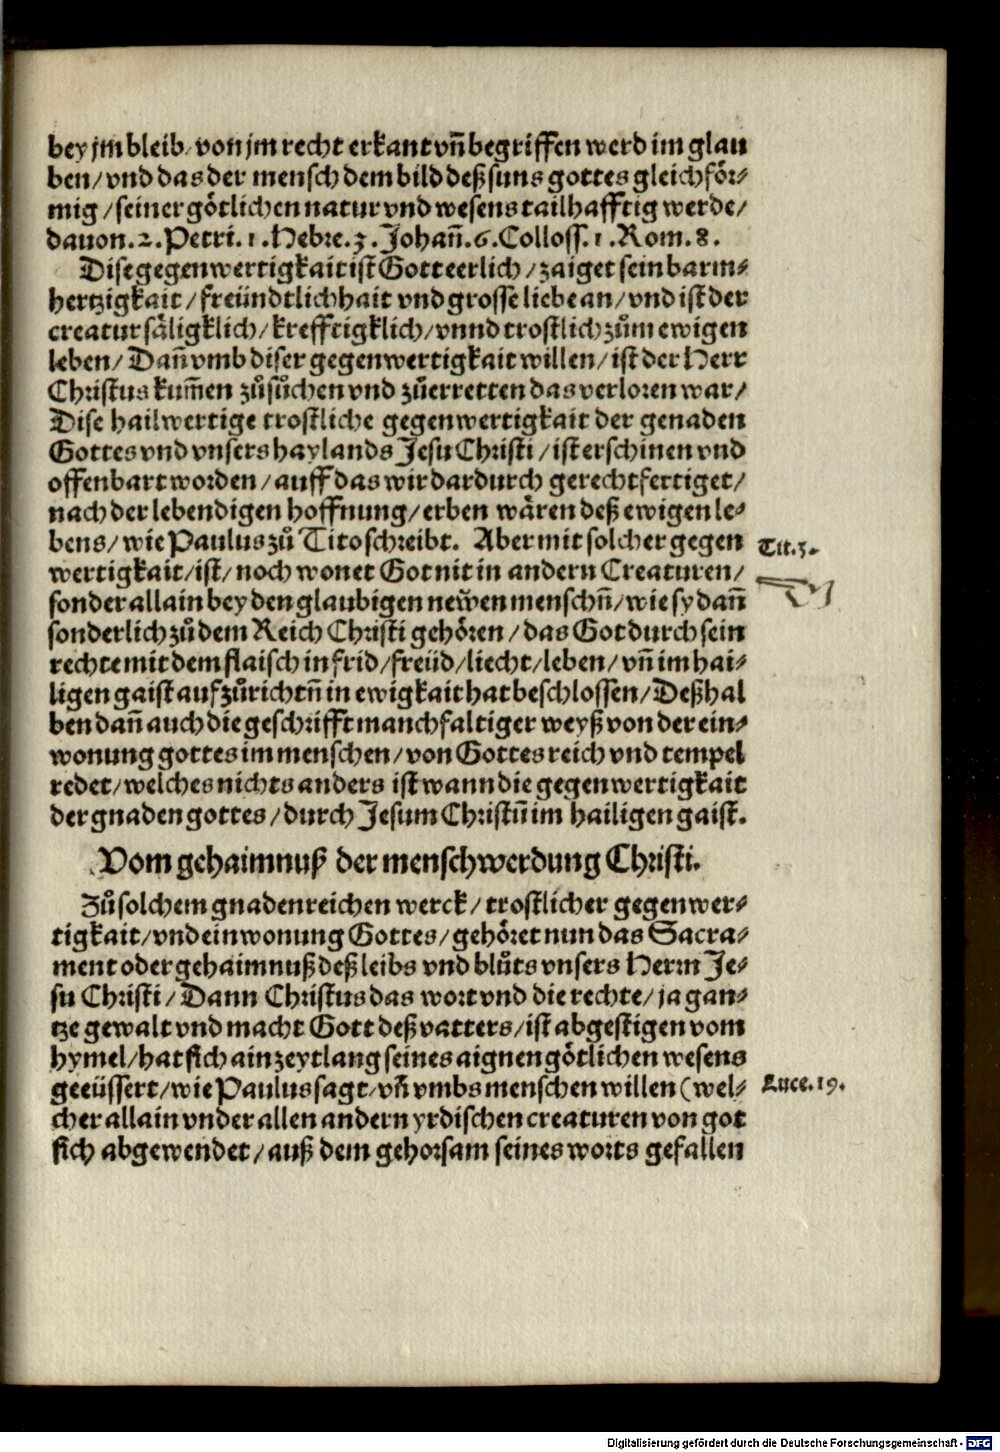 bey jm bleib / von jm recht erkant vñ begriffen werd im glau
ben / vnd das der mensch dem bild deß suns gottes gleichför⸗
mig / seiner götlichen natur vnd wesens tailhafftig werde /
dauon. 2. Petri. 1. Hebre. 3. Johañ. 6. Colloss. 1. Rom. 8.
Dise gegenwertigkait ist Gott eerlich / zaiget sein barm⸗
hertzigkait / freündtlichhait vnd grosse liebe an / vnd ist der
creatur säligklich / krefftigklich / vnnd trostlich zům ewigen
leben / Dañ vmb diser gegenwertigkait willen / ist der Herr
Christus kum̃en zůsůchen vnd zůerretten das verloren war /
Dise hailwertige trostliche gegenwertigkait der genaden
Gottes vnd vnsers haylands Jesu Christi / ist erschinen vnd
offenbart worden / auff das wir dardurch gerechtfertiget /
nach der lebendigen hoffnung / erben wären deß ewigen le⸗
bens / wie Paulus zů Tito schreibt. Aber mit solcher gegen
Tit. 3.
wertigkait / ist / noch wonet Got nit in andern Creaturen /
sonder allain bey den glaubigen newen menschñ / wie sy dañ
sonderlich zů dem Reich Christi gehören / das Got durch sein
rechte mit dem flaisch in frid / freüd / liecht / leben / vñ im hai⸗
ligen gaist aufzůrichtñ in ewigkait hat beschlossen / Deßhal
ben dañ auch die geschrifft manchfaltiger weyß von der ein⸗
wonung gottes im menschen / von Gottes reich vnd tempel
redet / welches nichts anders ist wann die gegenwertigkait
der gnaden gottes / durch Jesum Christũ im hailigen gaist.
Vom gehaimnuß der menschwerdung Christi.
Zů solchem gnadenreichen werck / trostlicher gegenwer⸗
tigkait / vnd einwonung Gottes / gehöret nun das Sacra⸗
ment oder gehaimnuß deß leibs vnd blůts vnsers Herrn Je⸗
su Christi / Dann Christus das wort vnd die rechte / ja gan⸗
tze gewalt vnd macht Gott deß vatters / ist abgestigen vom
hymel / hat sich ain zeytlang seines aignen götlichen wesens
geeüssert / wie Paulus sagt / vñ vmbs menschen willen (wel⸗
Luce. 19.
cher allain vnder allen andern yrdischen creaturen von got
sich abgewendet / auß dem gehorsam seines worts gefallen
Digitalisierung gefördert durch die Deutsche Forschungsgemeinschaft - DFG